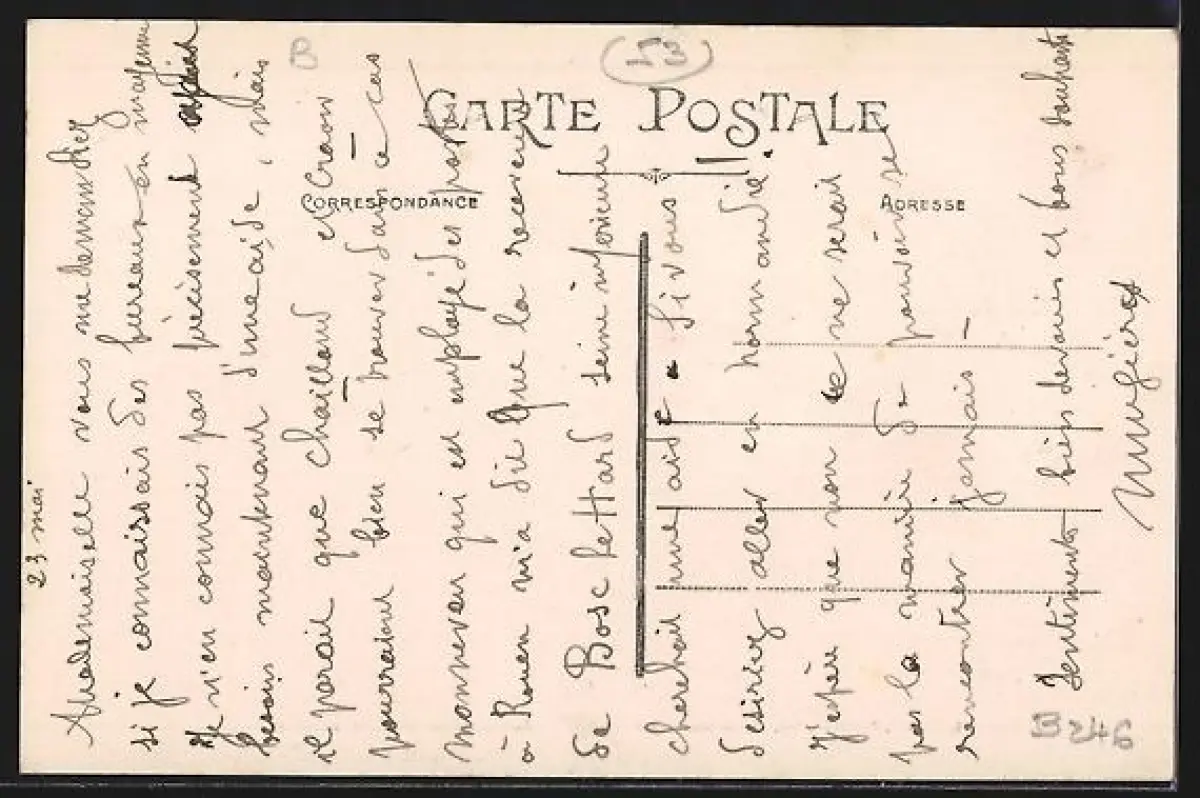 CARTE POSTALE
CORRESPONDANCE
ADRESSE
23 mai
Mademoiselle vous me demandiez
si je connaissais des bureaux en mayenne
je n'en connais pas précisement ayant
besoin maintenant d'une aide, mais
il parait que Chailland et Craon
pourraient bien se trouver dans ce cas
mon neveu qui est employé des postes
à Rouen m'a dit que la receveuse
de Bosc le Hard Seine inferieure
cherchait une aide si vous
desiriez aller en normandie.
J'espère que non ce ne serait
pas la manière de pouvoir se
rencontrer jamais –
Sentiments bien devoués et bons souhaits
B246